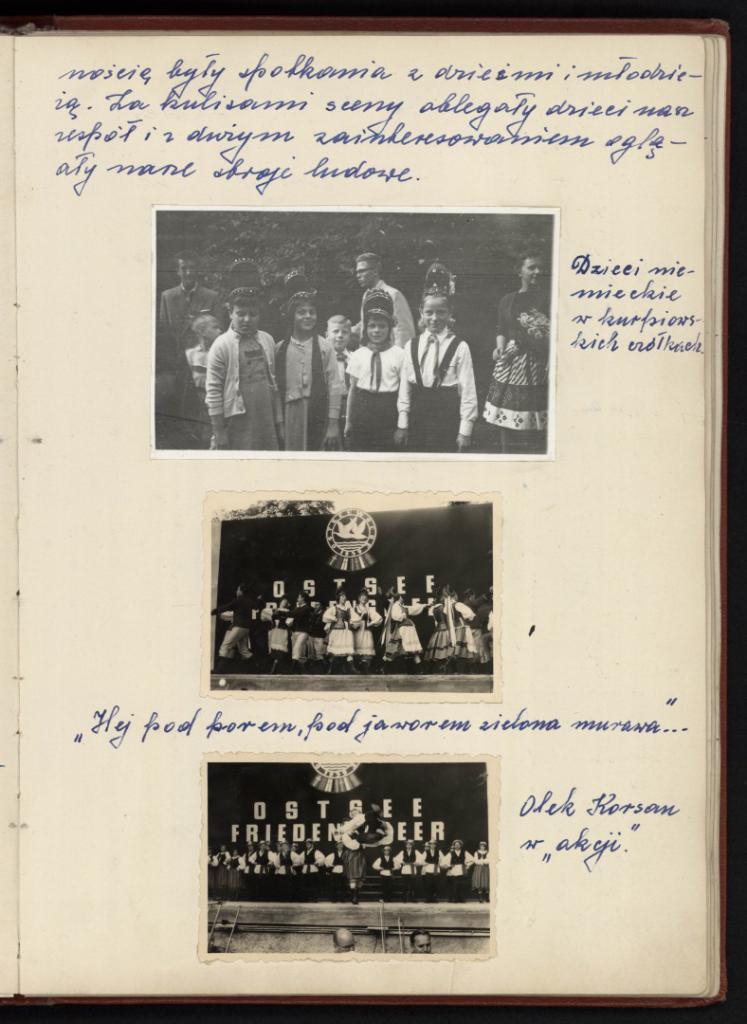 nością były spotkania z dziećmi i młodzie-
żą. Za kulisami sceny oblegały dzieci nasz
zespół i z dużym zainteresowaniem oglą-
ały nasze stroje ludowe.
Dzieci nie-
mieckie
w kurpiows-
kich czółkach.
OSTSEE
"Hej pod borem, pod jaworem zielona murawa"...
OSTSEE
FRIEDEN EER
Olek Korsan
w "akcji".